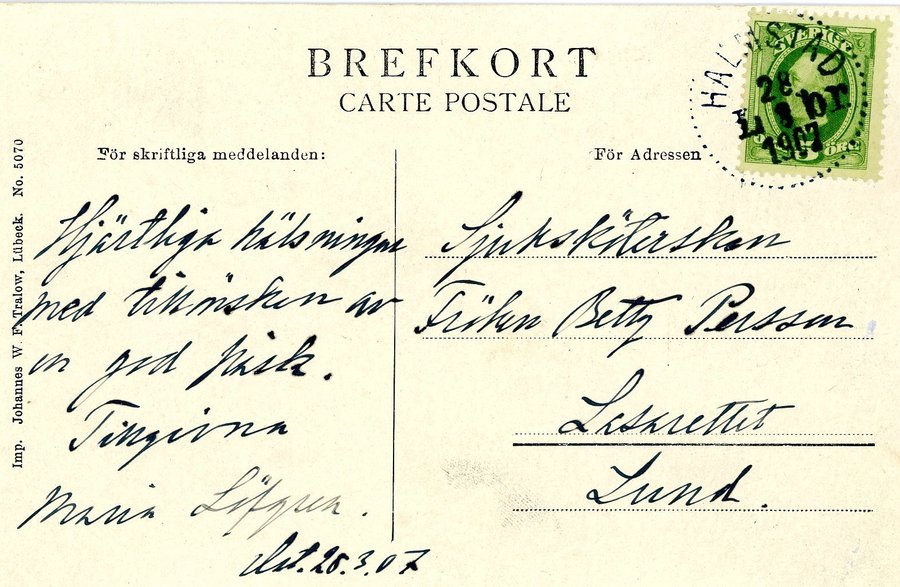 BREFKORT
CARTE POSTALE
För skriftliga meddelanden:
För Adressen
SVERIGE
ÖRE
HALMSTAD
28
3
1907
Imp. Johannes W. F. Tralow, Lübeck. No. 5070
Hjärtliga hälsningar
med tillönskan av
en god påsk.
Tillgivna
Maria Löfgren.
28.3.07
Sjuksköterskan
Fröken Betty Persson
Lasarettet
Lund.